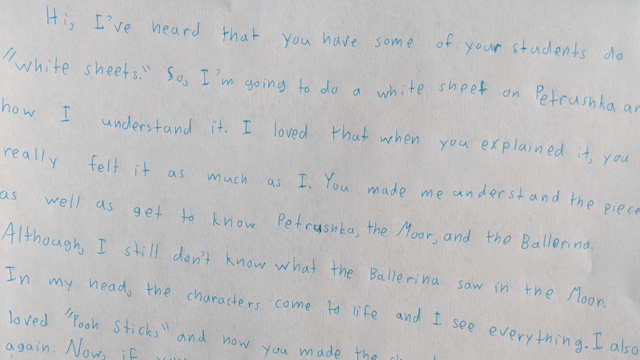 Hi, I've heard that you have some of your students do
"white sheets." So, I'm going to do a white sheet on Petrushka an
how I understand it. I loved that when you explained it, you
really felt it as much as I. You made me understand the piece
as well as get to know Petrushka, the Moor, and the Ballerina.
Although, I still don't know what the Ballerina saw in the Moor.
In my head, the characters come to life and I see everything. I also
loved "Pooh Sticks" and how you made the
again. Now, if